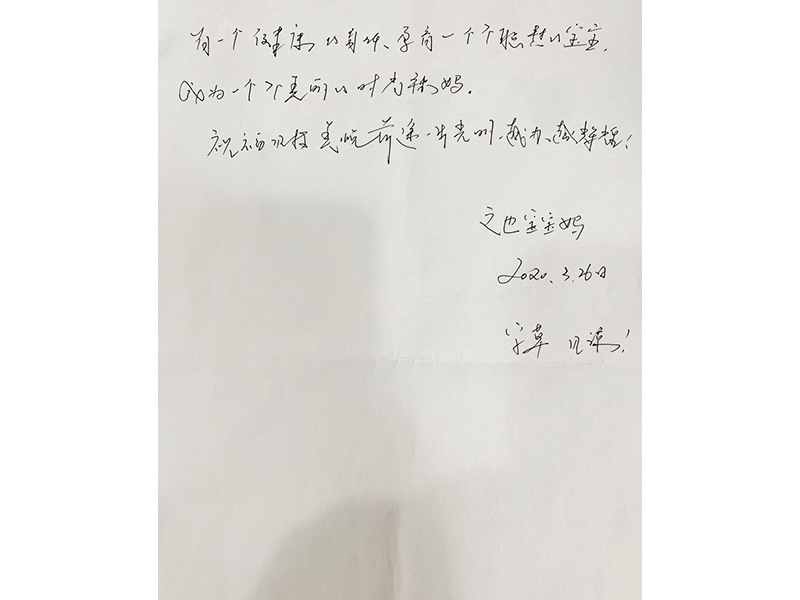 有一个健康的身体、孕育一个个聪慧的宝宝,
成为一个个美丽的时尚辣妈。
祝福 美悦前途一片光明、越办越辉煌!
文也宝宝妈
2020.3.26日
字草 见谅!